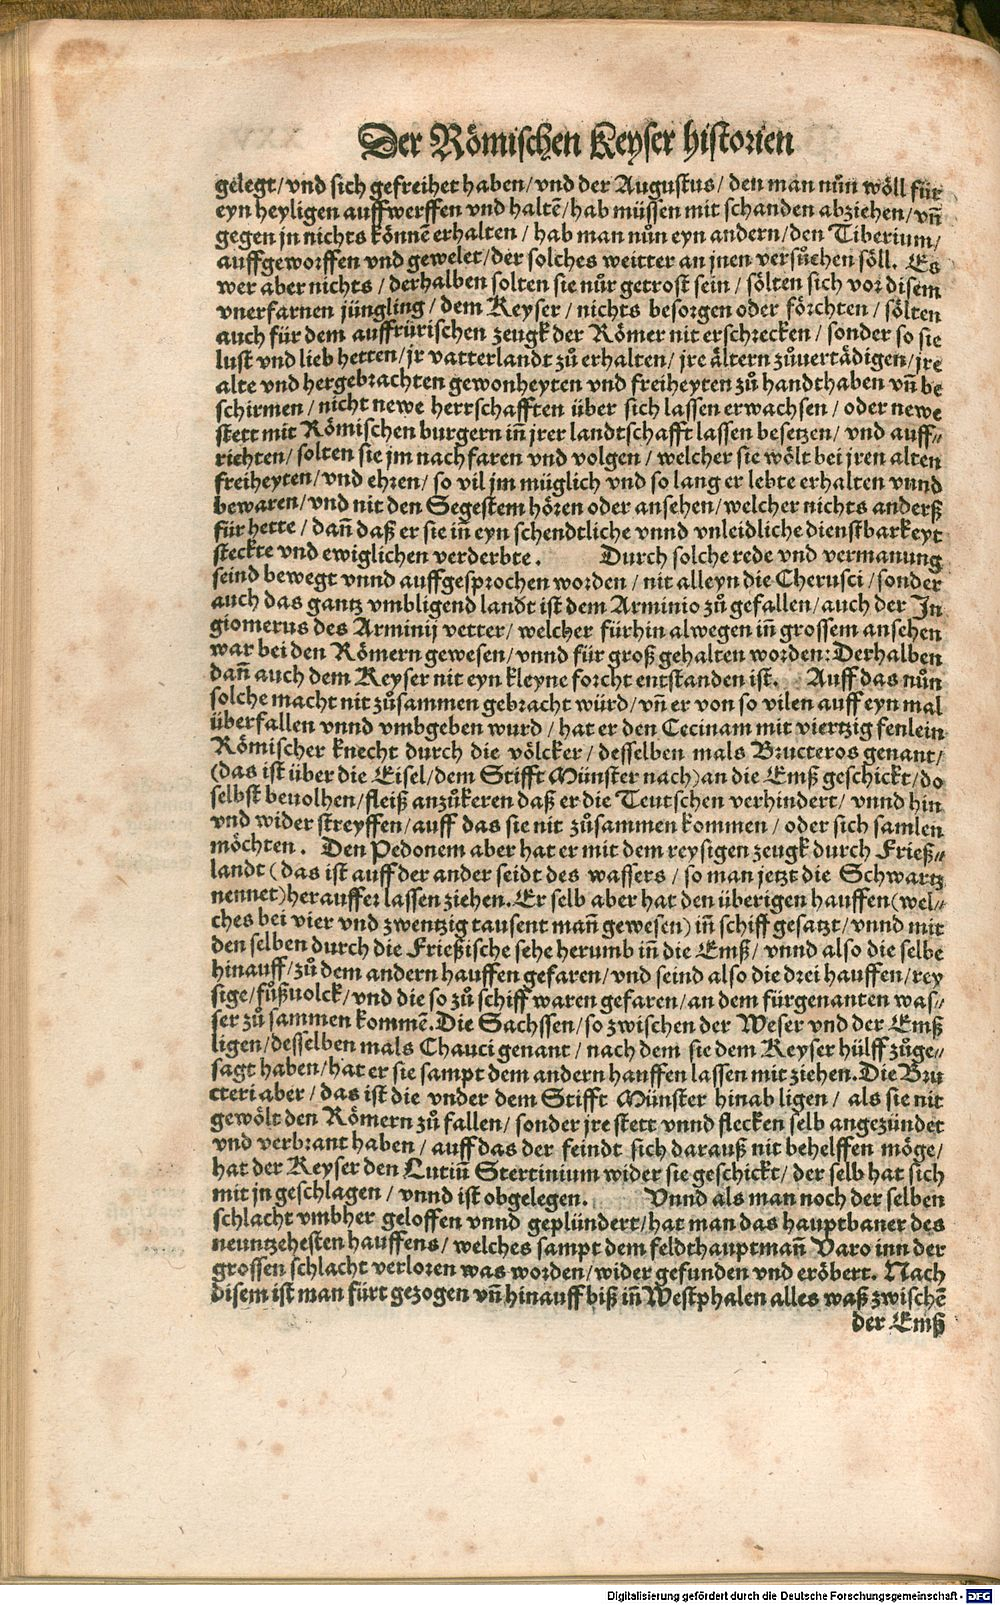 Der Römischen Keyser historien
gelegt/vnd sich gefreihet haben/vnd der Augustus/den man nůn wöll für
eyn heyligen auffwerffen vnd haltē/hab müssen mit schanden abziehen/vn̄
gegen jn nichts könnē erhalten/hab man nůn eyn andern/den Tiberium/
auffgeworffen vnd gewelet/der solches weitter an jnen versůchen söll. Es
wer aber nichts/derhalben solten sie nůr getrost sein/sölten sich vor disem
vnerfarnen jüngling/dem Keyser/nichts besorgen oder förchten/sölten
auch für dem auffrürischen zeugk der Römer nit erschrecken/sonder so sie
lust vnd lieb hetten/jr vatterlandt zů erhalten/jre ältern zůuertädigen/jre
alte vnd hergebrachten gewonheyten vnd freiheyten zů handthaben vn̄ be
schirmen/nicht newe herrschafften über sich lassen erwachsen/oder newe
stett mit Römischen burgern in̄ jrer landtschafft lassen besetzen/vnd auff⸗
richten/solten sie jm nachfaren vnd volgen/welcher sie wölt bei jren alten
freiheyten/vnd ehren/so vil jm müglich vnd so lang er lebte erhalten vnnd
bewaren/vnd nit den Segestem hören oder ansehen/welcher nichts anderß
für hette/dan̄ daß er sie in̄ eyn schendtliche vnnd vnleidliche dienstbarkeyt
steckte vnd ewiglichen verderbte. Durch solche rede vnd vermanung
seind bewegt vnnd auffgesprochen worden/nit alleyn die Cherusci/sonder
auch das gantz vmbligend landt ist dem Arminio zů gefallen/auch der In
giomerus des Arminij vetter/welcher fürhin alwegen in̄ grossem ansehen
war bei den Römern gewesen/vnnd für groß gehalten worden: Derhalben
dan̄ auch dem Keyser nit eyn kleyne forcht entstanden ist. Auff das nůn
solche macht nit zůsammen gebracht würd/vn̄ er von so vilen auff eyn mal
überfallen vnnd vmbgeben wurd/hat er den Cecinam mit viertzig fenlein
Römischer knecht durch die völcker/desselben mals Bructeros genant/
(das ist über die Eisel/dem Stifft Münster nach) an die Emß geschickt/do
selbst beuolhen/fleiß anzůkeren daß er die Teutschen verhindert/vnnd hin
vnd wider streyffen/auff das sie nit zůsammen kommen/oder sich samlen
möchten. Den Pedonem aber hat er mit dem reysigen zeugk durch Frieß⸗
landt (das ist auff der ander seidt des wassers/so man jetzt die Schwartz
nennet) herauffer lassen ziehen. Er selb aber hat den überigen hauffen (wel⸗
ches bei vier vnd zwentzig tausent man̄ gewesen) in̄ schiff gesatzt/vnnd mit
den selben durch die Frießische sehe herumb in̄ die Emß/vnnd also die selbe
hinauff/zů dem andern hauffen gefaren/vnd seind also die drei hauffen/rey
sige/fůßuolck/vnd die so zů schiff waren gefaren/an dem fürgenanten was⸗
ser zů sammen kommē. Die Sachssen/so zwischen der Weser vnd der Emß
ligen/desselben mals Chauci genant/nach dem sie dem Keyser hülff zůge⸗
sagt haben/hat er sie sampt dem andern hauffen lassen mit ziehen. Die Bru
cteri aber/das ist die vnder dem Stifft Münster hinab ligen/als sie nit
gewölt den Römern zů fallen/sonder jre stett vnnd flecken selb angezündet
vnd verbrant haben/auff das der feindt sich darauß nit behelffen möge/
hat der Keyser den Lutiū Stertinium wider sie geschickt/der selb hat sich
mit jn geschlagen/vnnd ist obgelegen. Vnnd als man noch der selben
schlacht vmbher geloffen vnnd geplündert/hat man das hauptbaner des
neuntzehesten hauffens/welches sampt dem feldthauptman̄ Varo inn der
grossen schlacht verloren was worden/wider gefunden vnd eröbert. Nach
disem ist man fürt gezogen vn̄ hinauff biß in̄ Westphalen alles waß zwischē
der Emß
Digitalisierung gefördert durch die Deutsche Forschungsgemeinschaft - DFG